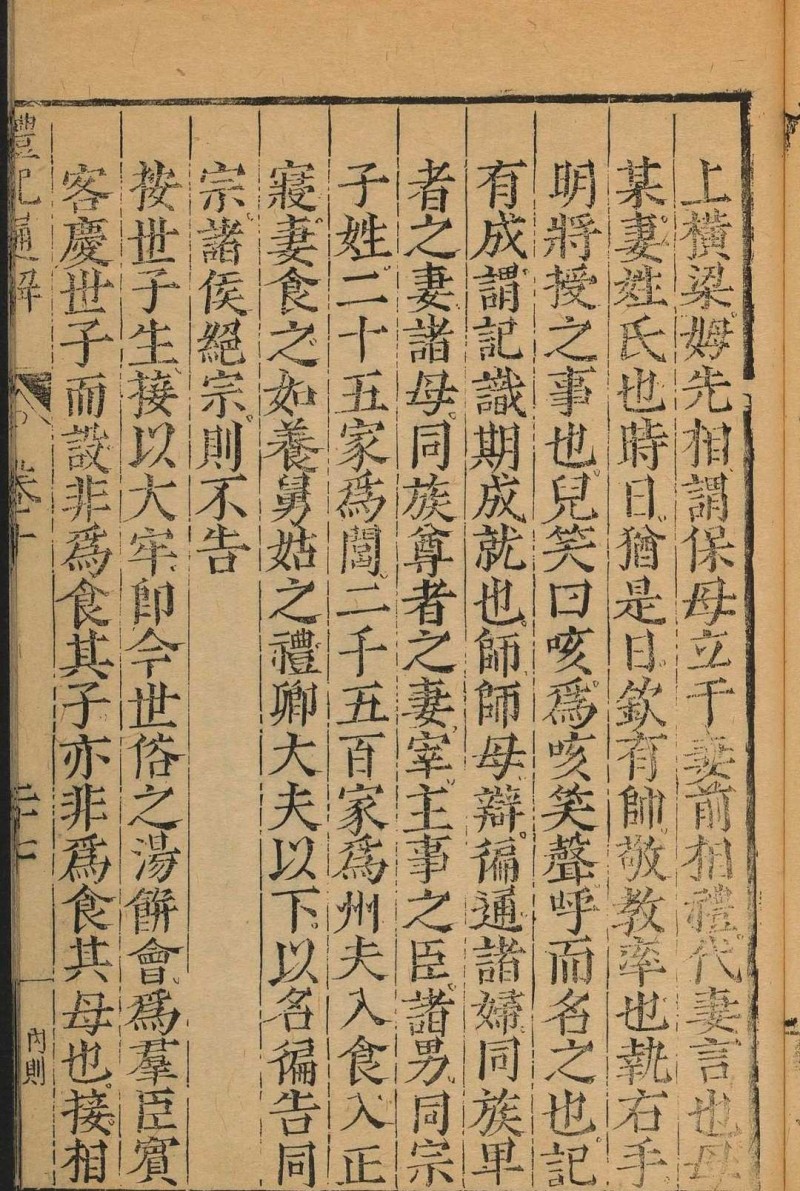 上橫梁姆先相謂保母立于妻前相禮代妻言也母
某妻姓氏也時日猶是日欽有帥敬教率也執右手
明將授之事也兒笑曰咳爲咳笑聲呼而名之也記
有成謂記識期成就也師師母辯徧通諸婦同族卑
者之妻諸母同族尊者之妻宰主事之臣諸男同宗
子姓二十五家爲閭二千五百家爲州夫入食入正
寢妻食之如養舅姑之禮卿大夫以下以名徧告同
宗諸侯絕宗則不告
按世子生接以大牢卽今世俗之湯餅會爲羣臣賓
客慶世子而設非爲食其子亦非爲食其母也接相
禮記通解 卷十 二十七 內則